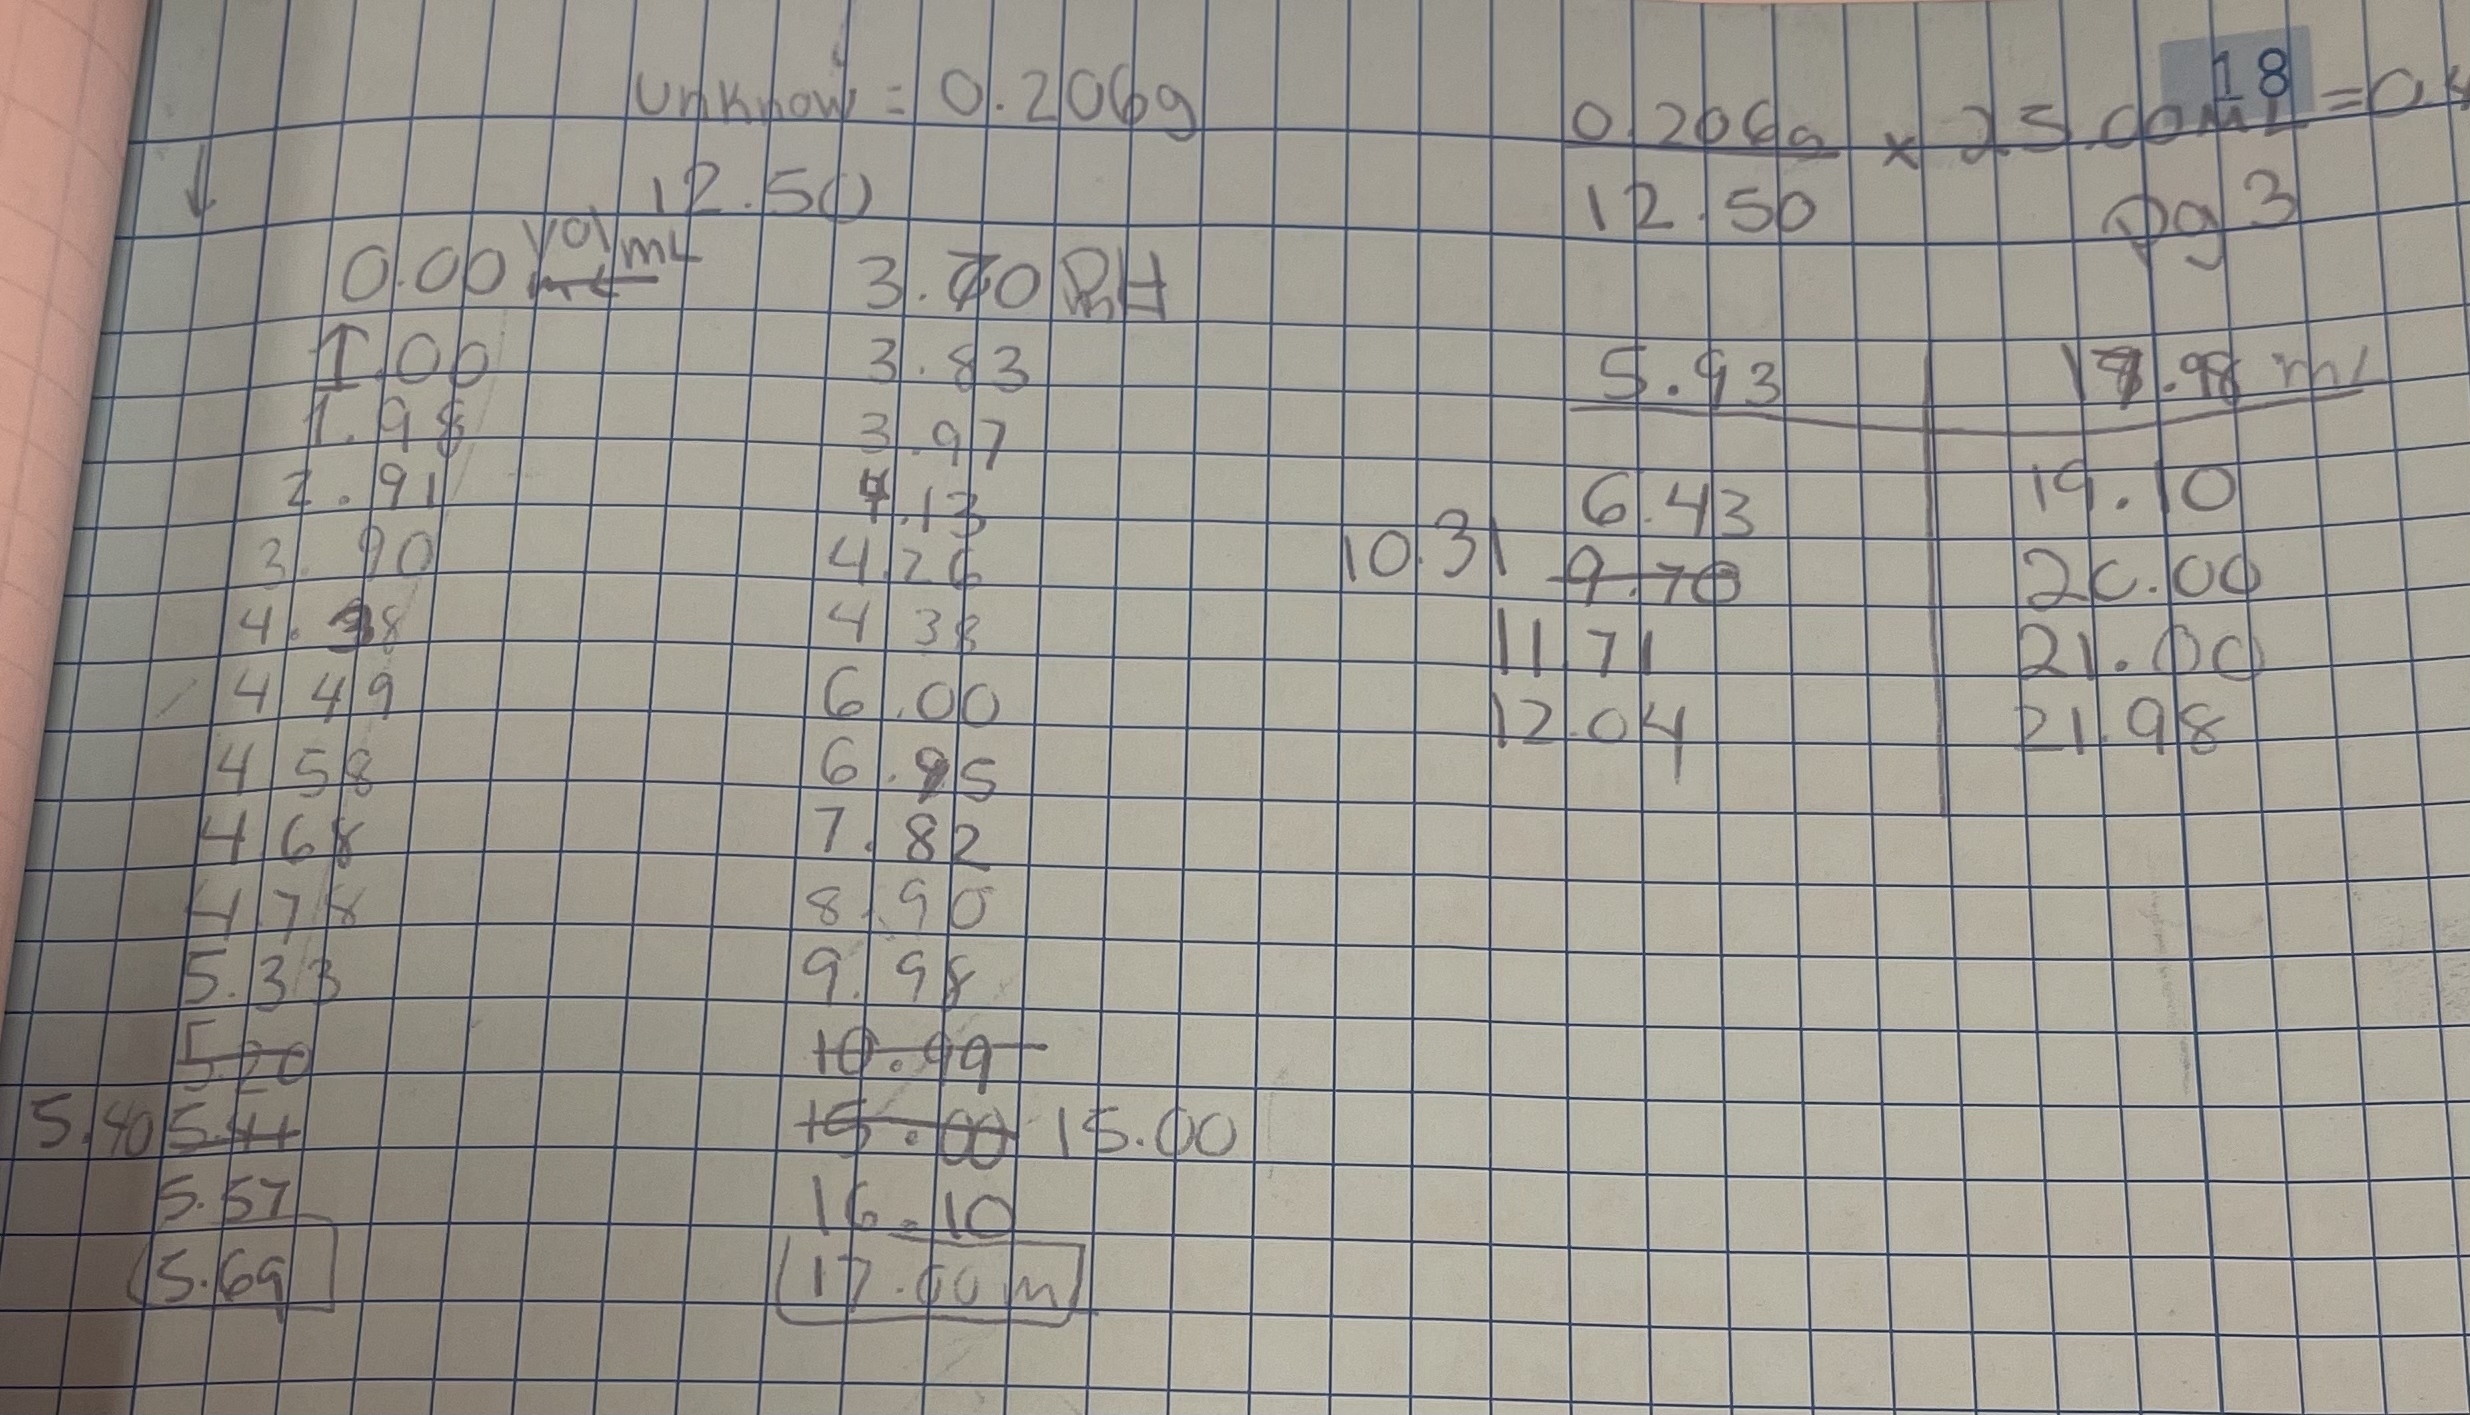 18
unknow = 0.206g
0.206g x 25.00mL =
12.50
12.50
pg 3
0.00 vol mL 3.70 PH
1.00 3.83
1.98 3.97
2.91 4.13
3.90 4.26
4.38 4 38
4 49 6.00
4 58 6.95
4 68 7.82
4 78 8.90
5.33 9.98
5.20 10.99
5.40 5.41 15.00 15.00
5.57 16.10
5.69 17.00 m
5.93 17.98 ml
6.43 19.10
10.31 9.70 20.00
11 71 21.00
12.04 21.98